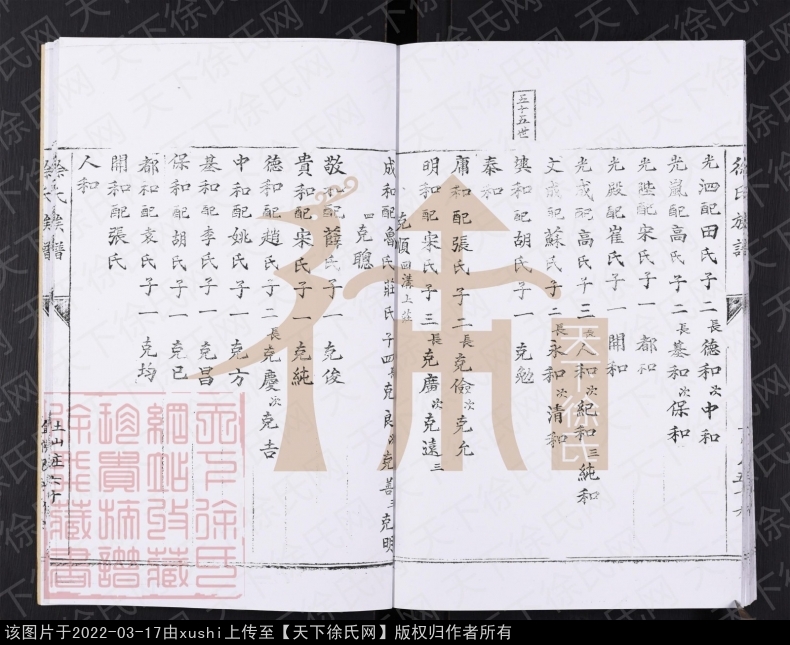 徐氏族譜
光泗配田氏子二長德和次中和
光嵐配高氏子二長基和次保和
光陞配宋氏子一都和
光殿配崔氏子一開和
光戎配高氏子三長人和次紀和三純和
文成配蘇氏子二長永和次清和
五十五世
樸和配胡氏子一克勉
泰和
庸和配張氏子二長克儉次克允
明和配宋氏子三長克廣次克遠三
克順四溝上莊
成和配魯氏莊氏子四長克良次克善三克明
四克聰
敬和配薛氏子一克俊
貴和配宋氏子一克純
德和配趙氏子二長克慶次克吉
中和配姚氏子一克方
基和配李氏子一克昌
保和配胡氏子一克已
都和配袁氏子一克均
開和配張氏
人和
徐氏族譜
土山莊
天下徐氏
天下徐氏網站收藏珍貴族譜徐氏藏書
该图片于2022-03-17由xushi上传至【天下徐氏网】版权归作者所有